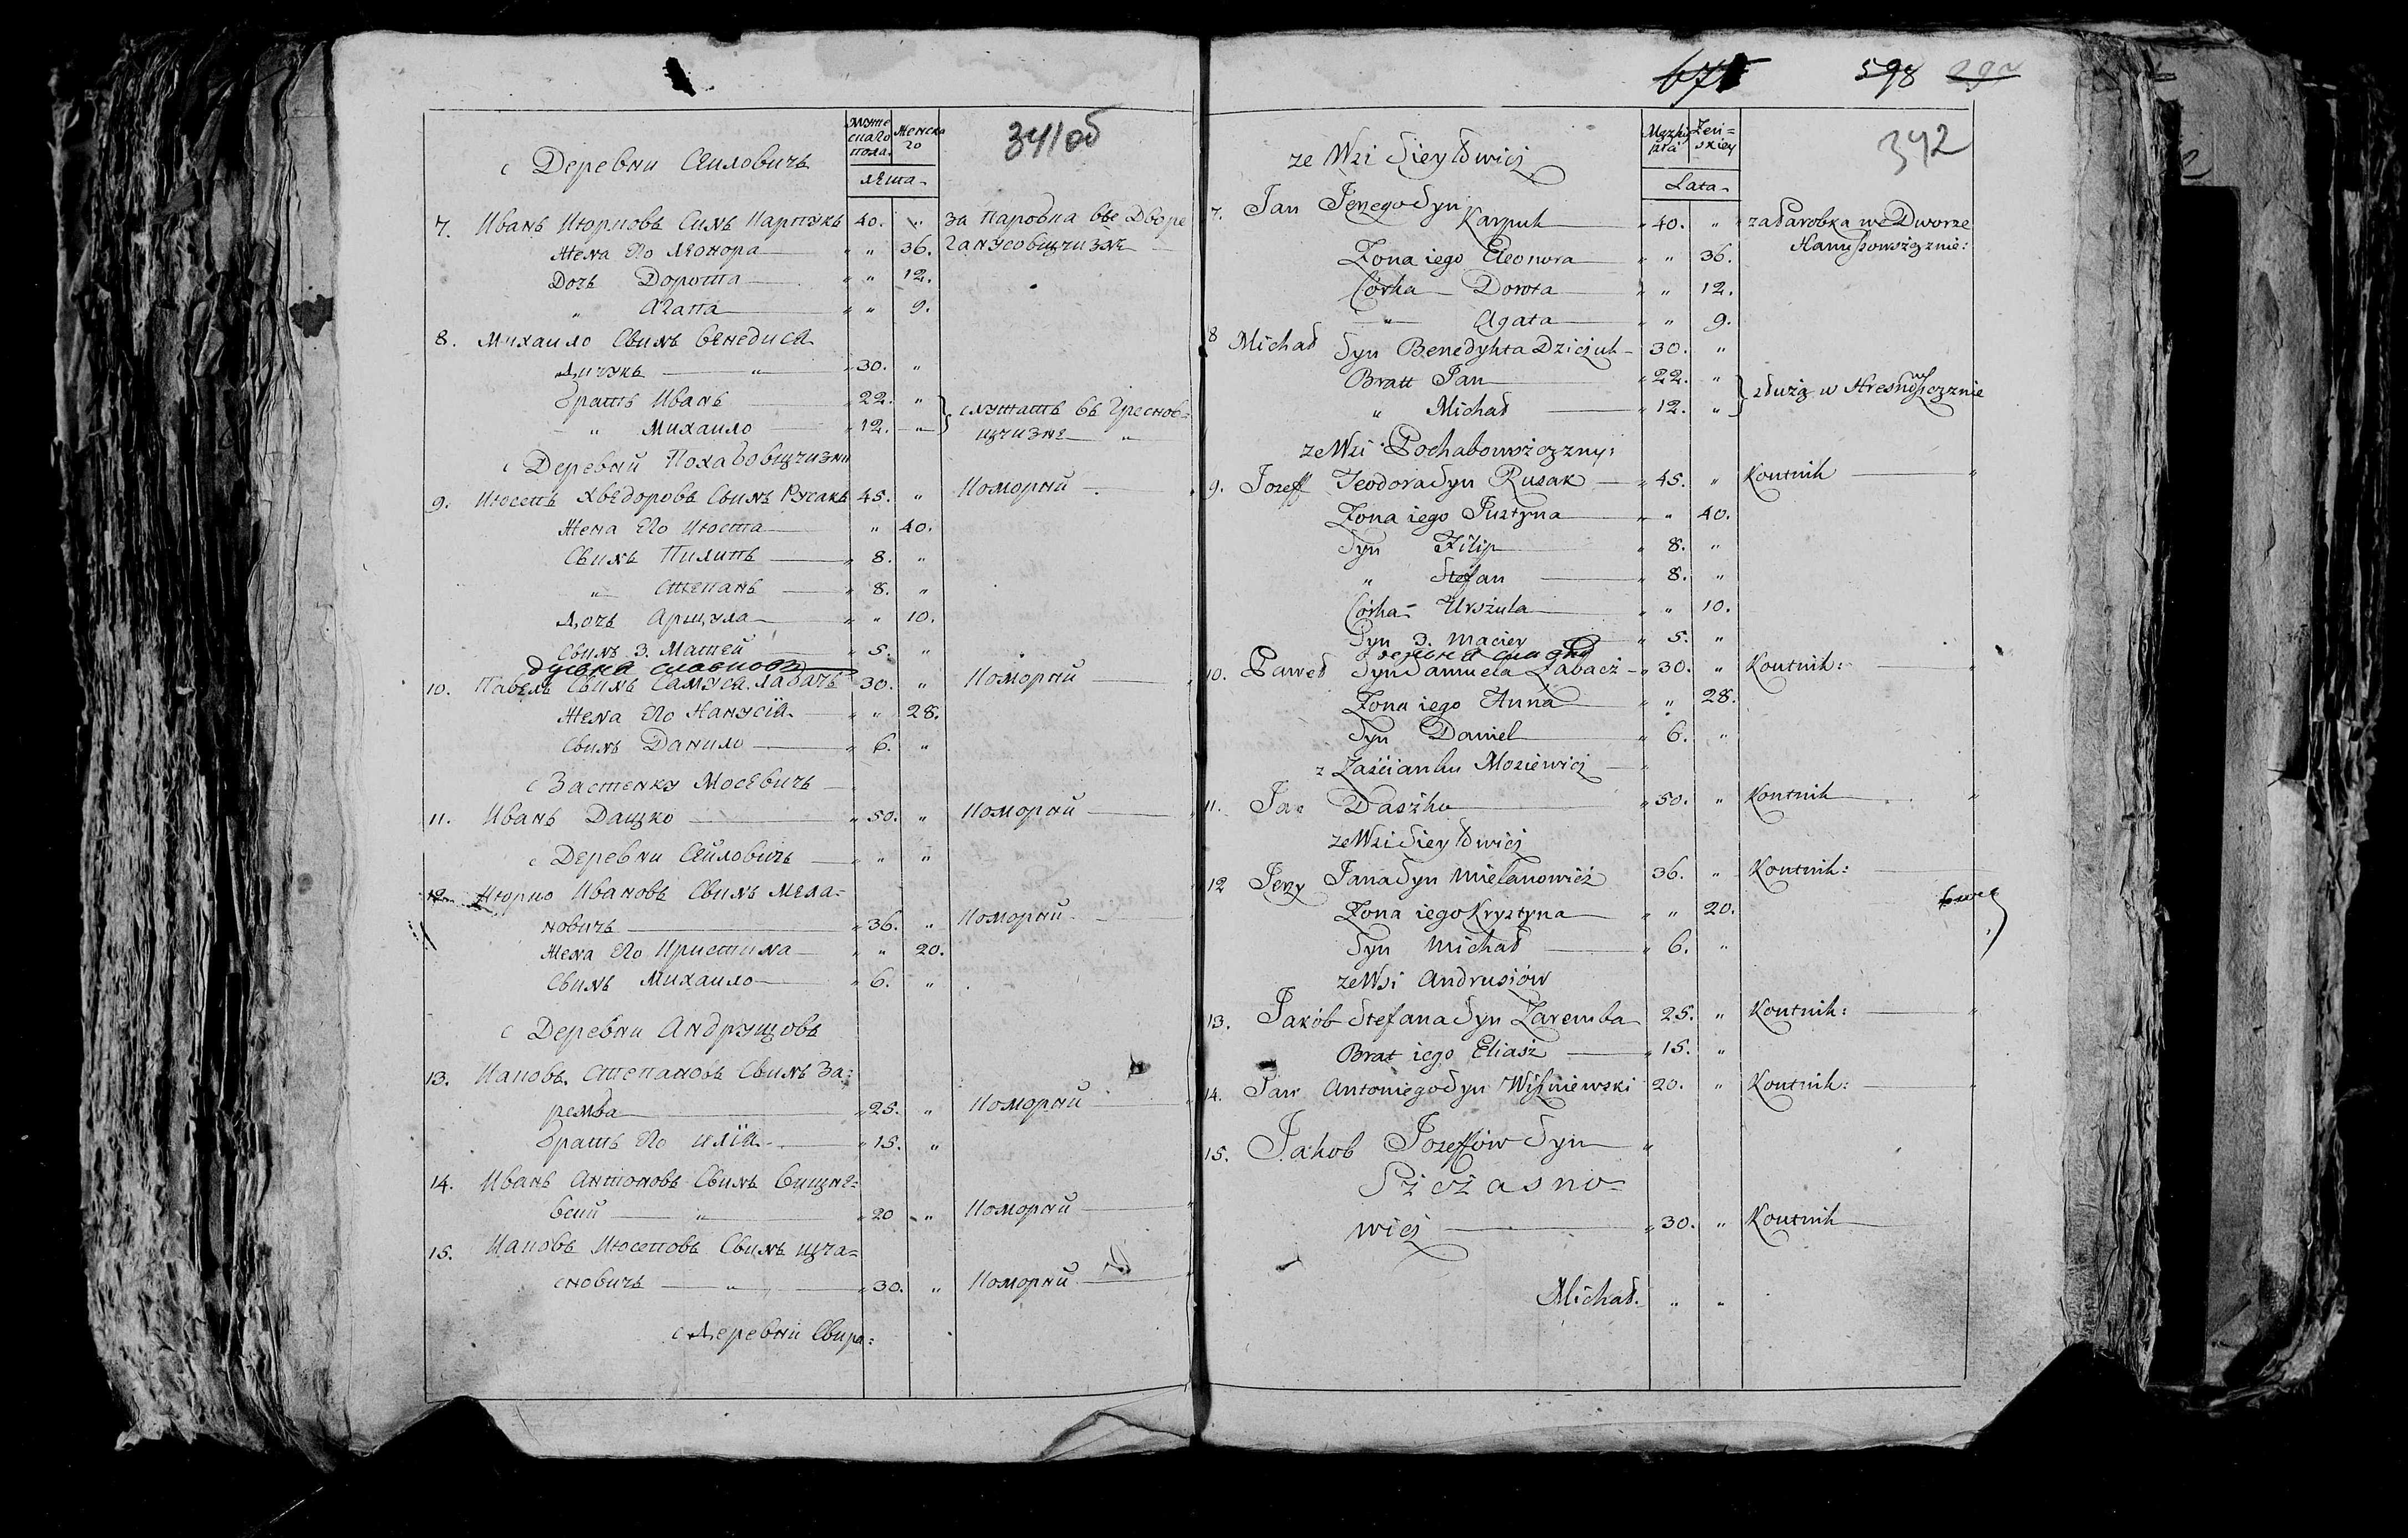 341об
Деревни Сѣиловичь
Муже
скаго
пола.
Женска
го
лѣта
7. Иванъ Июрковъ Синъ Карпукъ 40. „ за паробка вѣ Дворе
Жена Его Лѣонора „ „ 36. Ганусовщизнѣ
Дочь Дорота „ „ 12.
„ Агата „ „ 9.
8. Михаило Свинъ Бенедися
Дичукъ „ 30. „
Братъ Иванъ „ 22. „
„ Михаило „ 12. „ служать въ Гресков=
щизнѣ „
с Деревни Похабовщизни
9. Июсепъ Хвѣдоровъ Свинъ Русакъ 45. „ Коморнй
Жена Его Июста „ 40.
Свинъ Пилипъ „ 8. „
„ Степанъ „ 8. „
Дочь Аршула „ „ 10.
Свинъ 3. Матѣй „ 5. „
10. Павелъ Свинъ Самуся Лабачъ 30. „ Коморнй
Жена Его Ханусiя „ „ 28.
Свинъ Данило „ 6. „
с Застенку Мосѣвичь
11. Иванъ Дашко „ 50. „ Коморнй
с Деревни Сѣйловичь „ „
12. Июрко Ивановъ Свинъ Мела=
новичь „ 36. „ Коморнй
Жена Его Кристина „ „ 20.
Свинъ Михаило „ 6. „
с Деревни Андрушовъ
13. Иаковъ Степановъ Свинъ За=
ремба „ 25. „ Коморнй
Братъ Его Илiя „ 15. „
14. Иванъ Антоновъ Свинъ Вишне=
вскй „ 20 „ Коморнй
15. Иаковъ Июсеповъ Свинъ Щча=
сновичь „ 30. „ Коморнй
с Деревни Свира=
598
342
ze Wsi Sieyłowicz
Męzky
płci
Żeń=
skiey
Lata
7. Jan Jerzego Syn
Karpuk „ 40. „ za Parobka we Dworze
Hanuszowszcznie:
Żona iego Eleonora „ „ 36.
Córka Dorota „ „ 12.
„ Agata „ „ 9.
8 Michał Syn Benedykta Dziczuk 30. „
Bratt Jan „ 22. „
„ Michał „ 12. „ służą w Hreskowszcznie
ze Wsi Pochabowszczny:
9. Jozeff Teodora Syn Rusak „ 45. „ Koutnik
Żona iego Justyna „ „ 40.
Syn Filip „ 8. „
„ Stefan „ 8. „
Córka Urszula „ „ 10.
Syn 3. Maciey „ 5. „
10. Paweł Syn Samuela Łabacz „ 30. „ Koutnik:
Żona iego Anna „ „ 28.
Syn Daniel „ 6. „
z Zaścianku Mosiewicz „
11. Jan Daszko „ 50. „ Koutnik
ze Wsi Sieyłowicz
12 Jerzy Jana Syn Mielanowicz 36. „ Koutnik:
Żona iego Krystyna „ „ 20.
Syn Michał „ 6. „
ze Wsi Andrusiów
13. Jakób Stefana Syn Zaremba 25. „ Koutnik:
Brat iego Eliasz „ 15. „
14. Jan Antoniego Syn Wiszniewski 20. „ Koutnik:
15. Jakob Jozeffów Syn „
Szczasno=
wicz „ 30. „ Koutnik
Michał. „ „